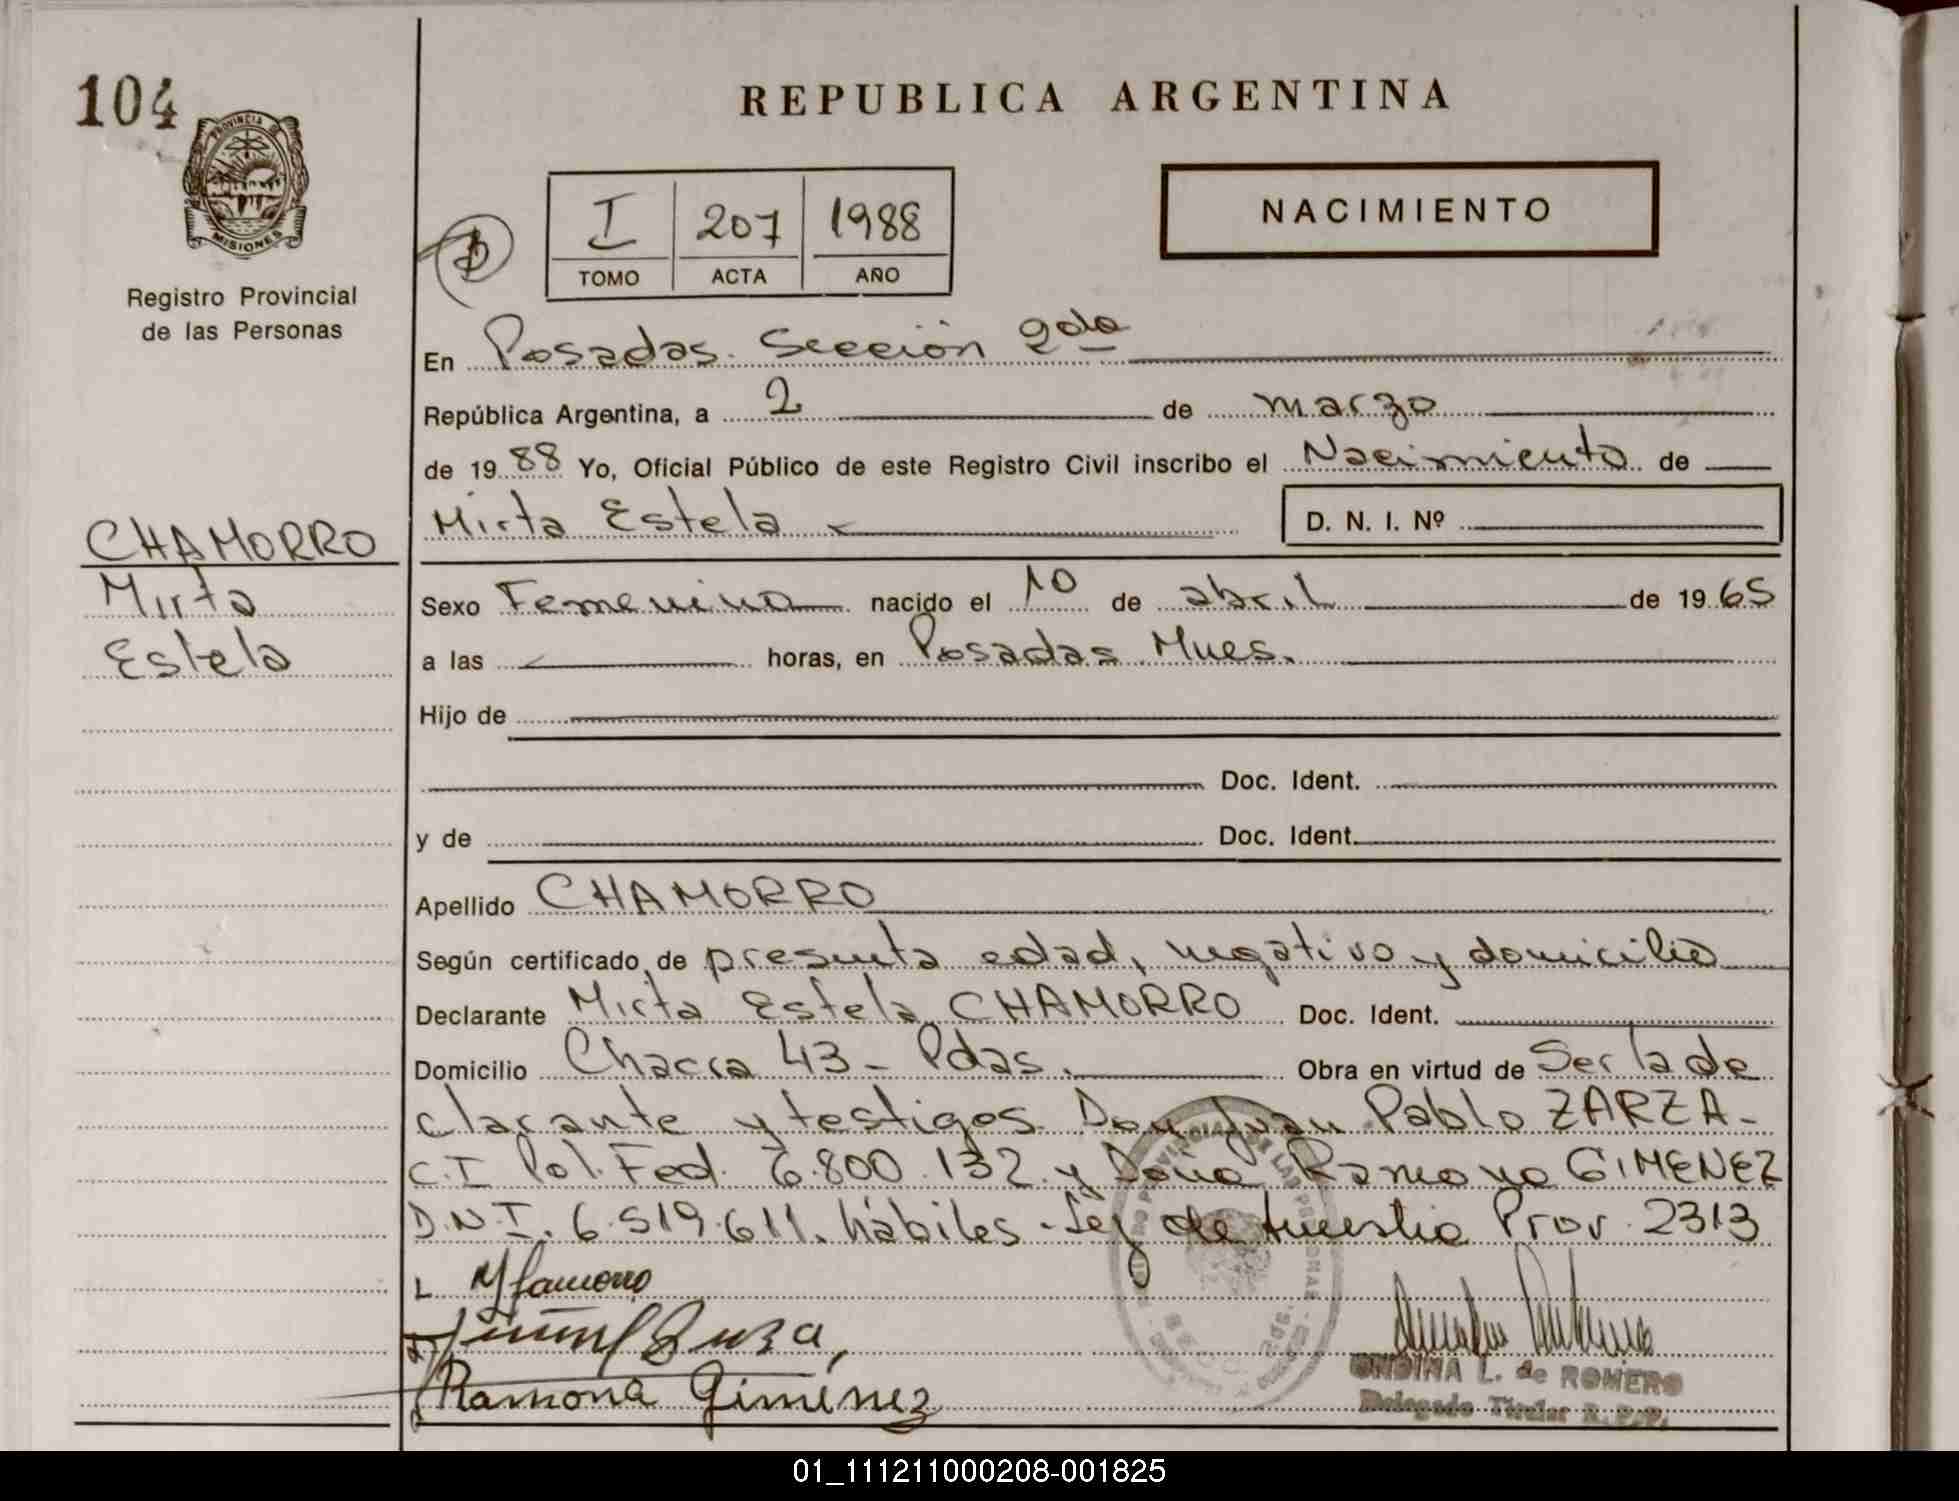 104
REPUBLICA ARGENTINA
PROVINCIA DE
MISIONES
Registro Provincial
de las Personas
I 207 1988
TOMO ACTA AÑO
NACIMIENTO
En Posadas. Sección 2da
República Argentina, a 2 de marzo
de 1988 Yo, Oficial Público de este Registro Civil inscribo el Nacimiento de
Mirta Estela
D. N. I. Nº
CHAMORRO
Mirta
Estela
Sexo Femenino nacido el 10 de abril de 1965
a las horas, en Posadas Mnes.
Hijo de
Doc. Ident.
y de Doc. Ident.
Apellido CHAMORRO
Según certificado de presunta edad, negativo y domicilio
Declarante Mirta Estela CHAMORRO Doc. Ident.
Domicilio Chacra 43 - Pdas. Obra en virtud de Ser la de
clarante y testigos Don Juan Pablo ZARZA-
C.I Pol. Fed. 6.800.132 y Doña Ramona GIMENEZ
D.N.I. 6.519.611. hábiles - Ley de Prov. 2313
Ramona Giménez
ONDINA L. de ROMERO
Delegado Titular R.P.P.
01_111211000208-001825